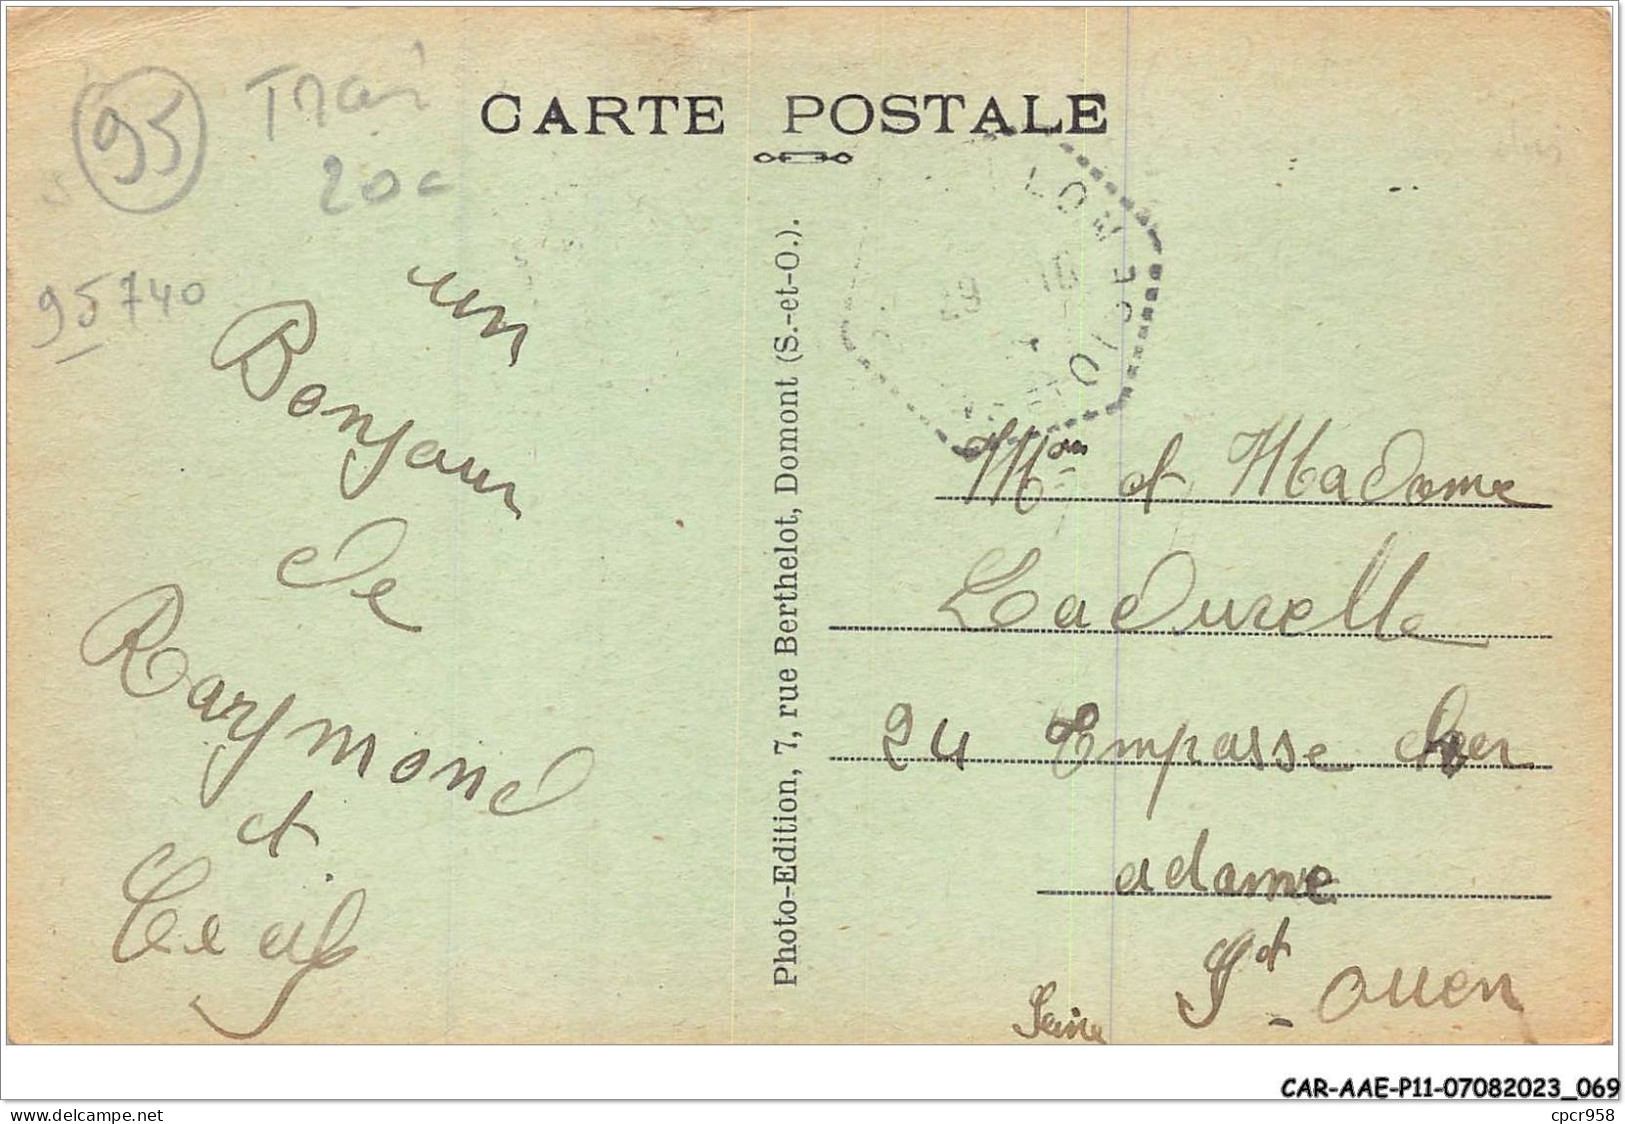 95
20c
95740
CARTE POSTALE
un
Bonjour
de
Raymond
et
Photo-Edition, 7, rue Berthelot, Domont (S.-et-O.).
OISE
Mon et Madame
Ladurelle
24 Empasse cher
adame
St Ouen
Seine
CAR-AAE-P11-07082023_069
www.delcampe.net
cpcr958